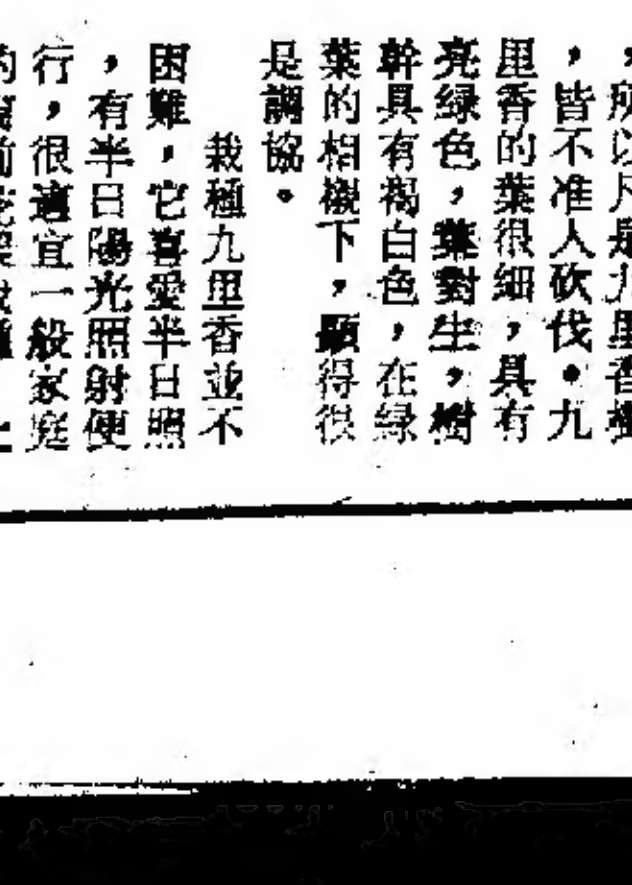 ，所以凡是九里香樹
，皆不准人砍伐。九
里香的葉很細，具有
亮綠色，葉對生，樹
幹具有褐白色，在綠
葉的相襯下，顯得很
是調協。
栽種九里香並不
困難，它喜愛半日照
，有半日陽光照射便
行，很適宜一般家庭
的窗前